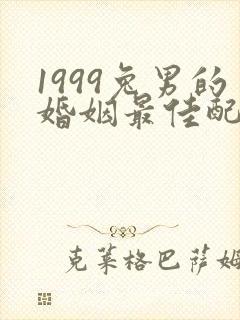 1999兔男的
婚姻最佳配
克莱格巴萨姆